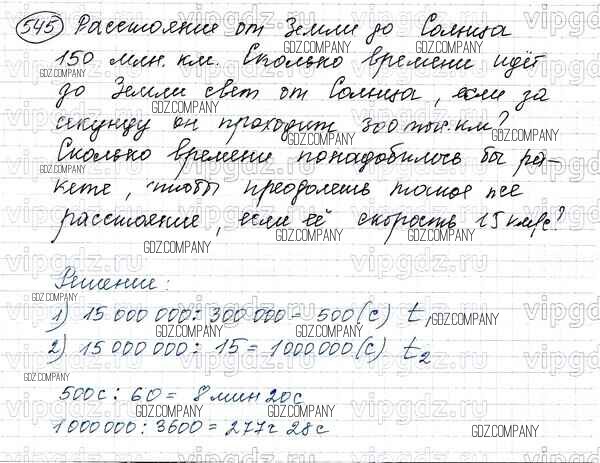 545 Расстояние от Земли до Солнца
150 млн. км. Сколько времени идёт
до Земли свет от Солнца, если за
секунду он проходит 300 тыс. км?
Сколько времени понадобилось бы ра-
кете, чтобы преодолеть такое же
расстояние, если её скорость 15 км/с?
Решение:
1) 15 000 000 : 300 000 = 500 (с) t₁
2) 15 000 000 : 15 = 1000 000 (с) t₂
500с : 60 = 8 мин 20с
1 000 000 : 3600 = 277г 28с
GDZ.COMPANY
vipgdz.ru